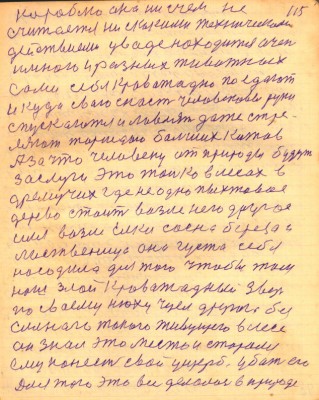 115
корабло она ни счем не
считается ни скакими техническими
действиями у воде находится очен
имного и разных животных
сами себя кроватадно поедают
и куда сваго снаст человеков руки
спускаются и ловлят даже стре
ляют торпедою балших китов
А за что человеку от природы будут
заслуги это толко в лесах в
дремучих где неодно пихтовое
дерево стоит возле него другое
или возле елки сосна береза а
лиственица она густа себя
насодила для того чтобы там
злой кроватадный звер
по своему нюху чуел другога бес
силнаго такого живущего в лесе
он знал это место и старался
ему понест свой ущерб убат его
Для того это все делалос в природе